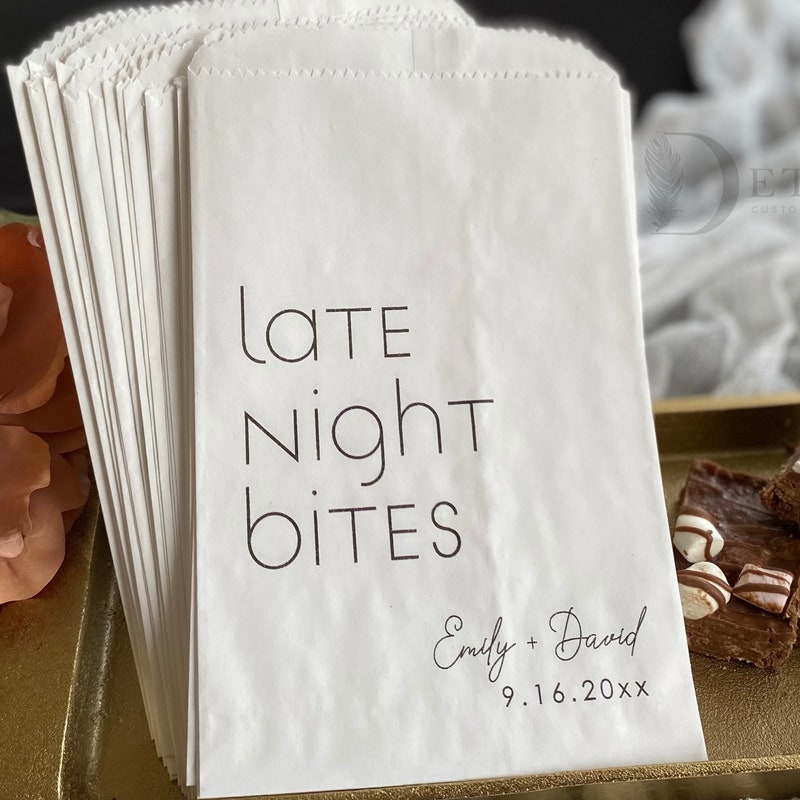 late
Night
bites
Emily + David
9.16.20xx